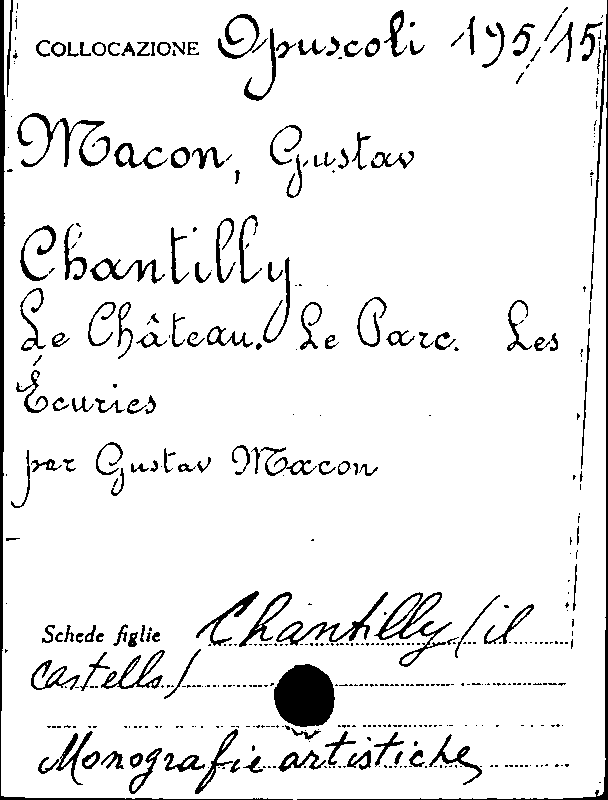 COLLOCAZIONE Opuscoli 195/15
Macon, Gustav
Chantilly
Le Château. Le Parc. Les
Écuries
par Gustav Macon
Schede figlie Chantilly (il
castello)
Monografie artistiche